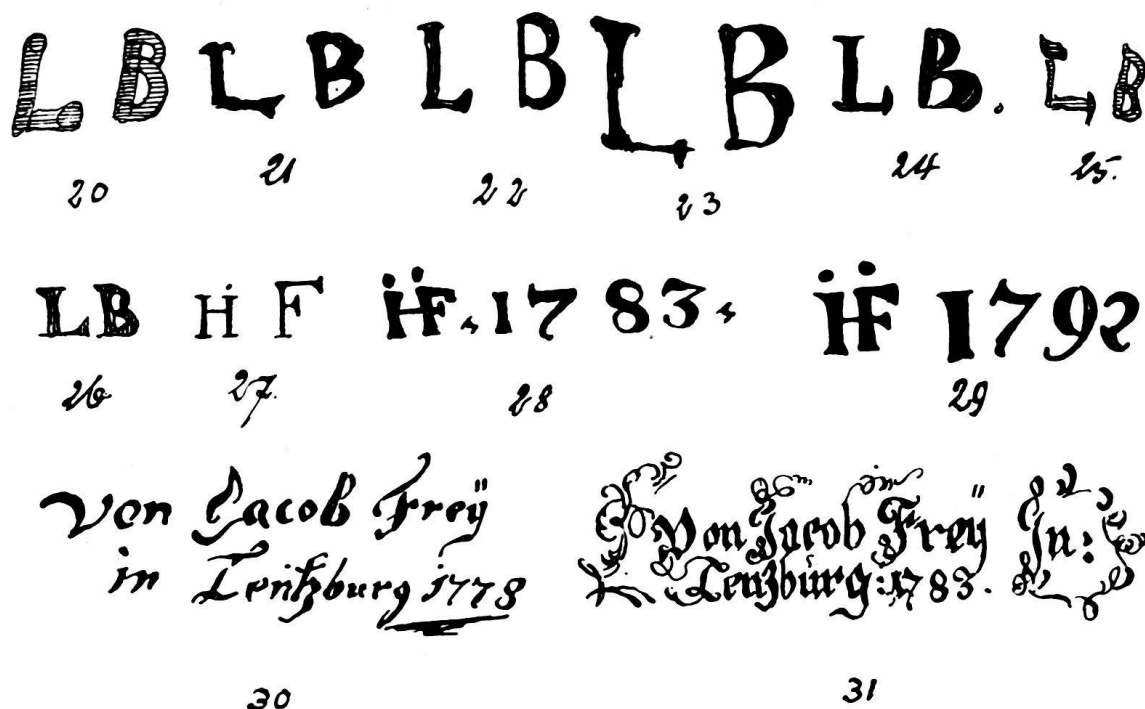 L B L B L B L B L B. L B
20 21 22 23 24 25.
LB Ḣ F ḦF. 1783. ḦF 1792
26 27. 28 29
Von Jacob Freÿ
in Lentzburg 1778
Von Jacob Freÿ In:
Lenzburg: 1783.
30 31